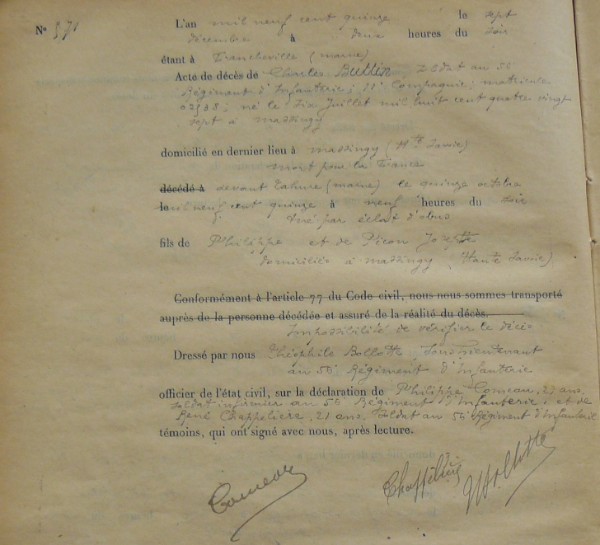 N° 571
L'an mil neuf cent quinze le sept
décembre à deux heures du soir
étant à Francheville (marne)
Acte de décès de Charles Buttin, soldat au 56
Régiment d'Infanterie; 11e Compagnie; matricule
; né le six Juillet mil huit cent quatre vingt
sept à massingy
domicilié en dernier lieu à massingy (Hte Savoie)
mort pour la France
décédé à devant Tahure (marne) le quinze octobre
le mil neuf cent quinze à neuf heures du soir
tué par éclat d'obus
fils de Philippe et de Picon Josette
domiciliés à massingy (Haute Savoie)
Conformément à l'article 77 du Code civil, nous nous sommes transporté
auprès de la personne décédée et assuré de la réalité du décès.
Impossibilité de vérifier le décès
Dressé par nous Théophile Bollotte, Sous-lieutenant
au 56e Régiment d'Infanterie
officier de l'état civil, sur la déclaration de Philippe Comeau, 27 ans,
soldat infirmier au 56 Régiment d'Infanterie, et de
René Chappeliere, 21 ans, soldat au 56 Régiment d'Infanterie
témoins, qui ont signé avec nous, après lecture.
Comeau Bollotte